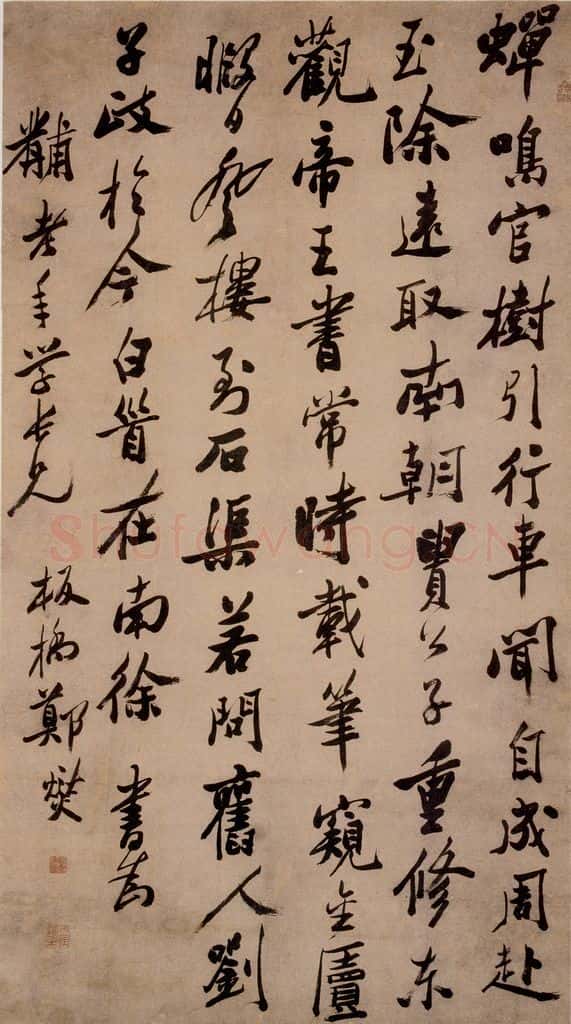 蟬鳴官樹引行車聞自成周赴
玉除遠取南朝貴公子重修东
觀帝王書常時載筆窺金匱
暇日登樓到石渠若問舊人劉
子政於今白首在南徐 書為
黼老年学长兄 板橋鄭燮
Shufawang.CN